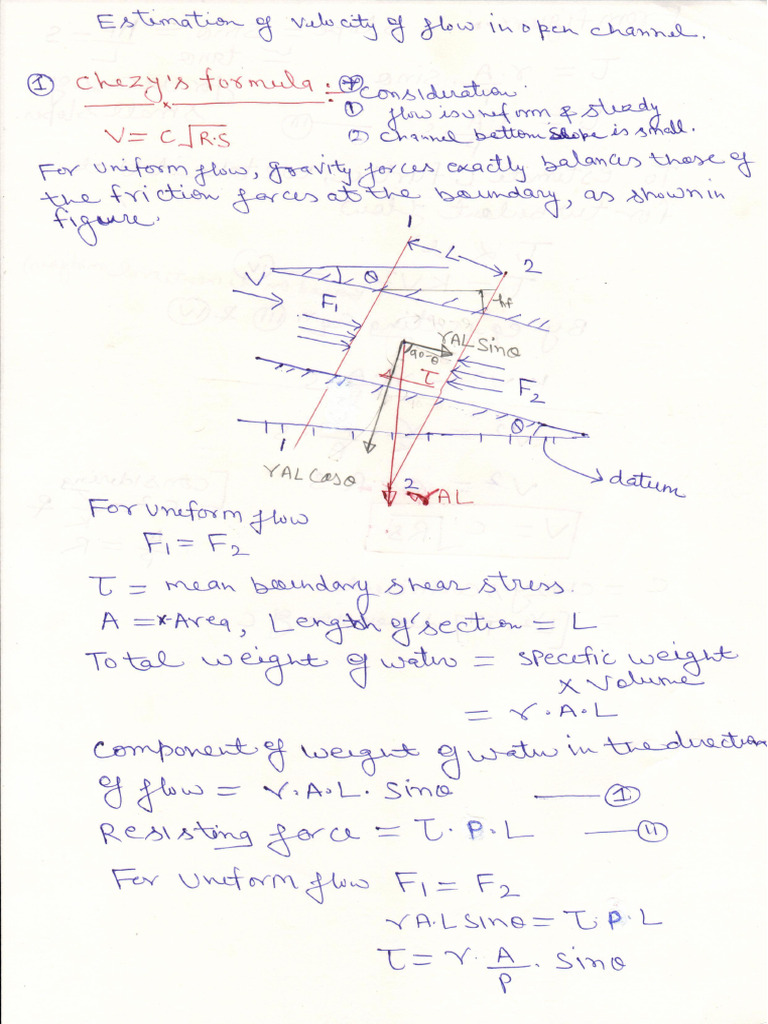 Estimation of velocity of flow in open channel.
① Chezy's formula :- * Consideration
① flow is uneform & steady
V = C√R·S
② Channel bottom Slope is small.
For uniform flow, gravity forces exactly balances those of
the friction forces at the boundary, as shown in
figure.
1
L
2
V
θ
hf
F1
γAL Sinθ
90-θ
τ
F2
θ
1
γAL Cosθ
2
γAL
datum
For uneform flow
F1 = F2
τ = mean boundary shear stress.
A = x-Area, Length of section = L
Total weight of water = specific weight
x Volume
= γ·A·L
Component of weight of water in the direction
of flow = γ·A·L· Sinθ —— ①
Resisting force = τ· P·L —— ⑪
For Uneform flow F1 = F2
γA·L sinθ = τ·P·L
τ = γ· A/P · Sinθ